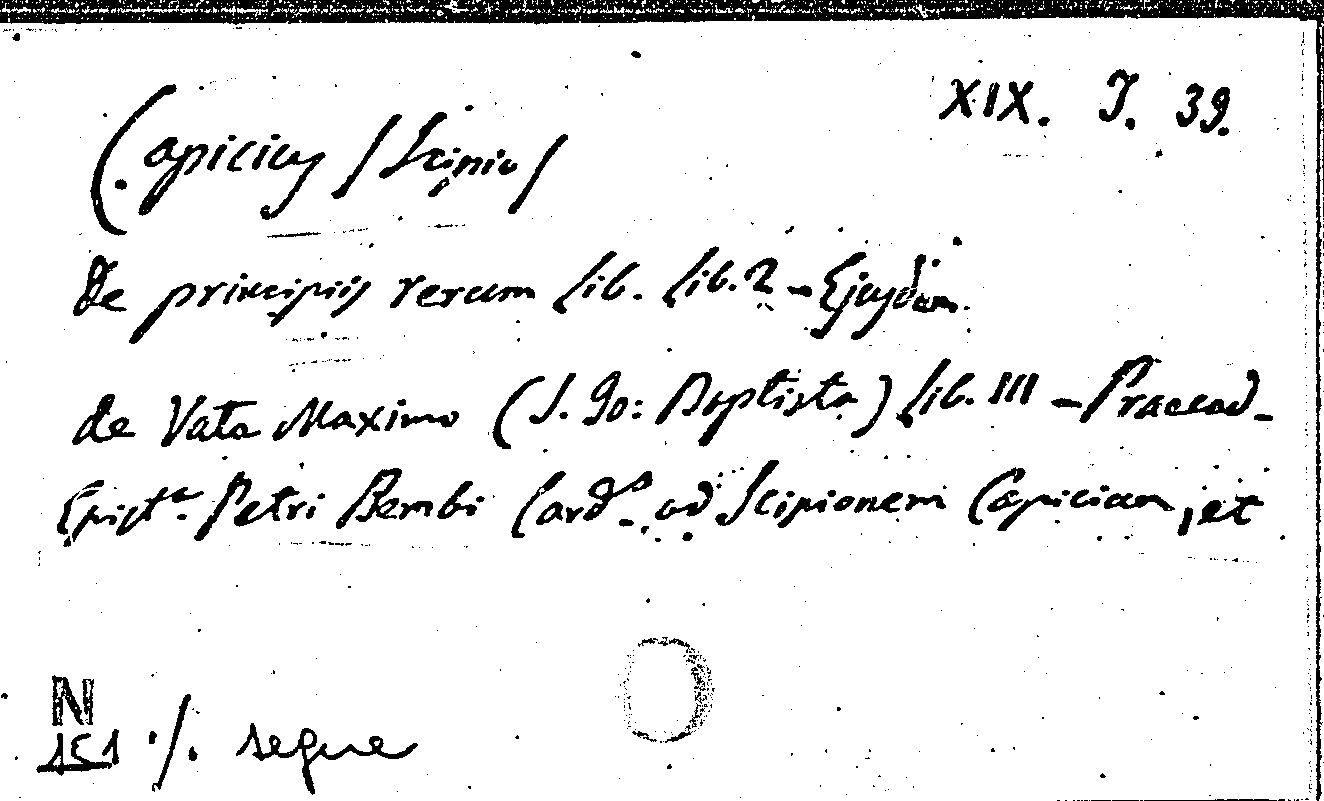 XIX. J. 39.
Capicius /Scipio/
De principiis rerum lib. lib. 2 - Ejusdem.
de Vate Maximo (S. Jo: Baptista) lib. III - Praeced-
Epist.ª Petri Bembi Card.º ad Scipionem Capicium, et
N
151 ·/. segue